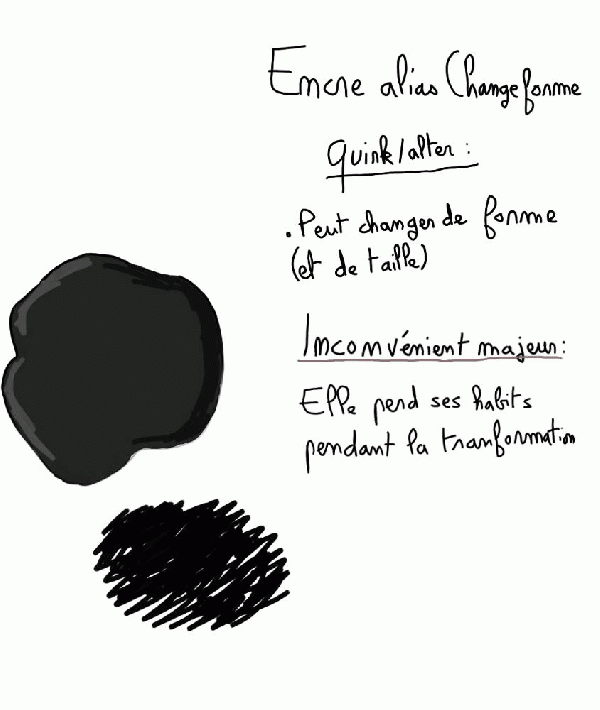 Encre alias Changeforme
Quirk/alter :
• Peut changer de forme
(et de taille)
Inconvénient majeur :
Elle perd ses habits
pendant la tranformation